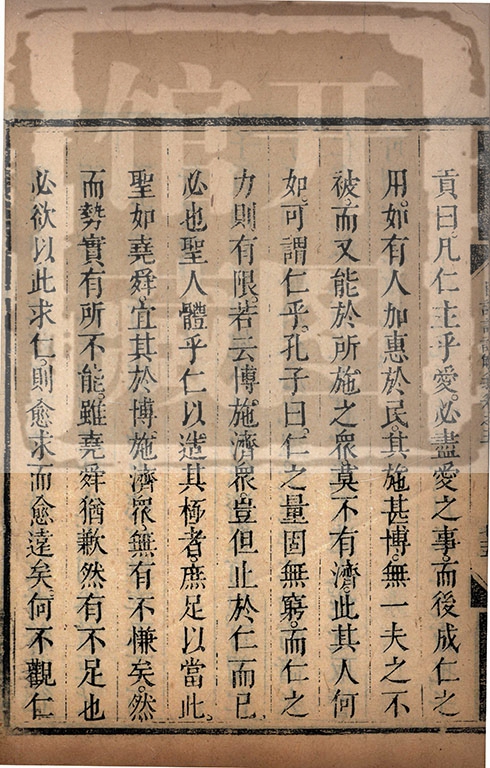 貢曰凡仁主乎愛必盡愛之事而後成仁之
用如有人加惠於民其施甚博無一夫之不
被而又能於所施之衆莫不有濟此其人何
如可謂仁乎孔子曰仁之量固無窮而仁之
力則有限若云博施濟衆豈但止於仁而已
必也聖人體乎仁以造其極者庶足以當此
聖如堯舜宜其於博施濟衆無有不慊矣然
而勢實有所不能雖堯舜猶歉然有不足也
必欲以此求仁則愈求而愈遠矣何不觀仁